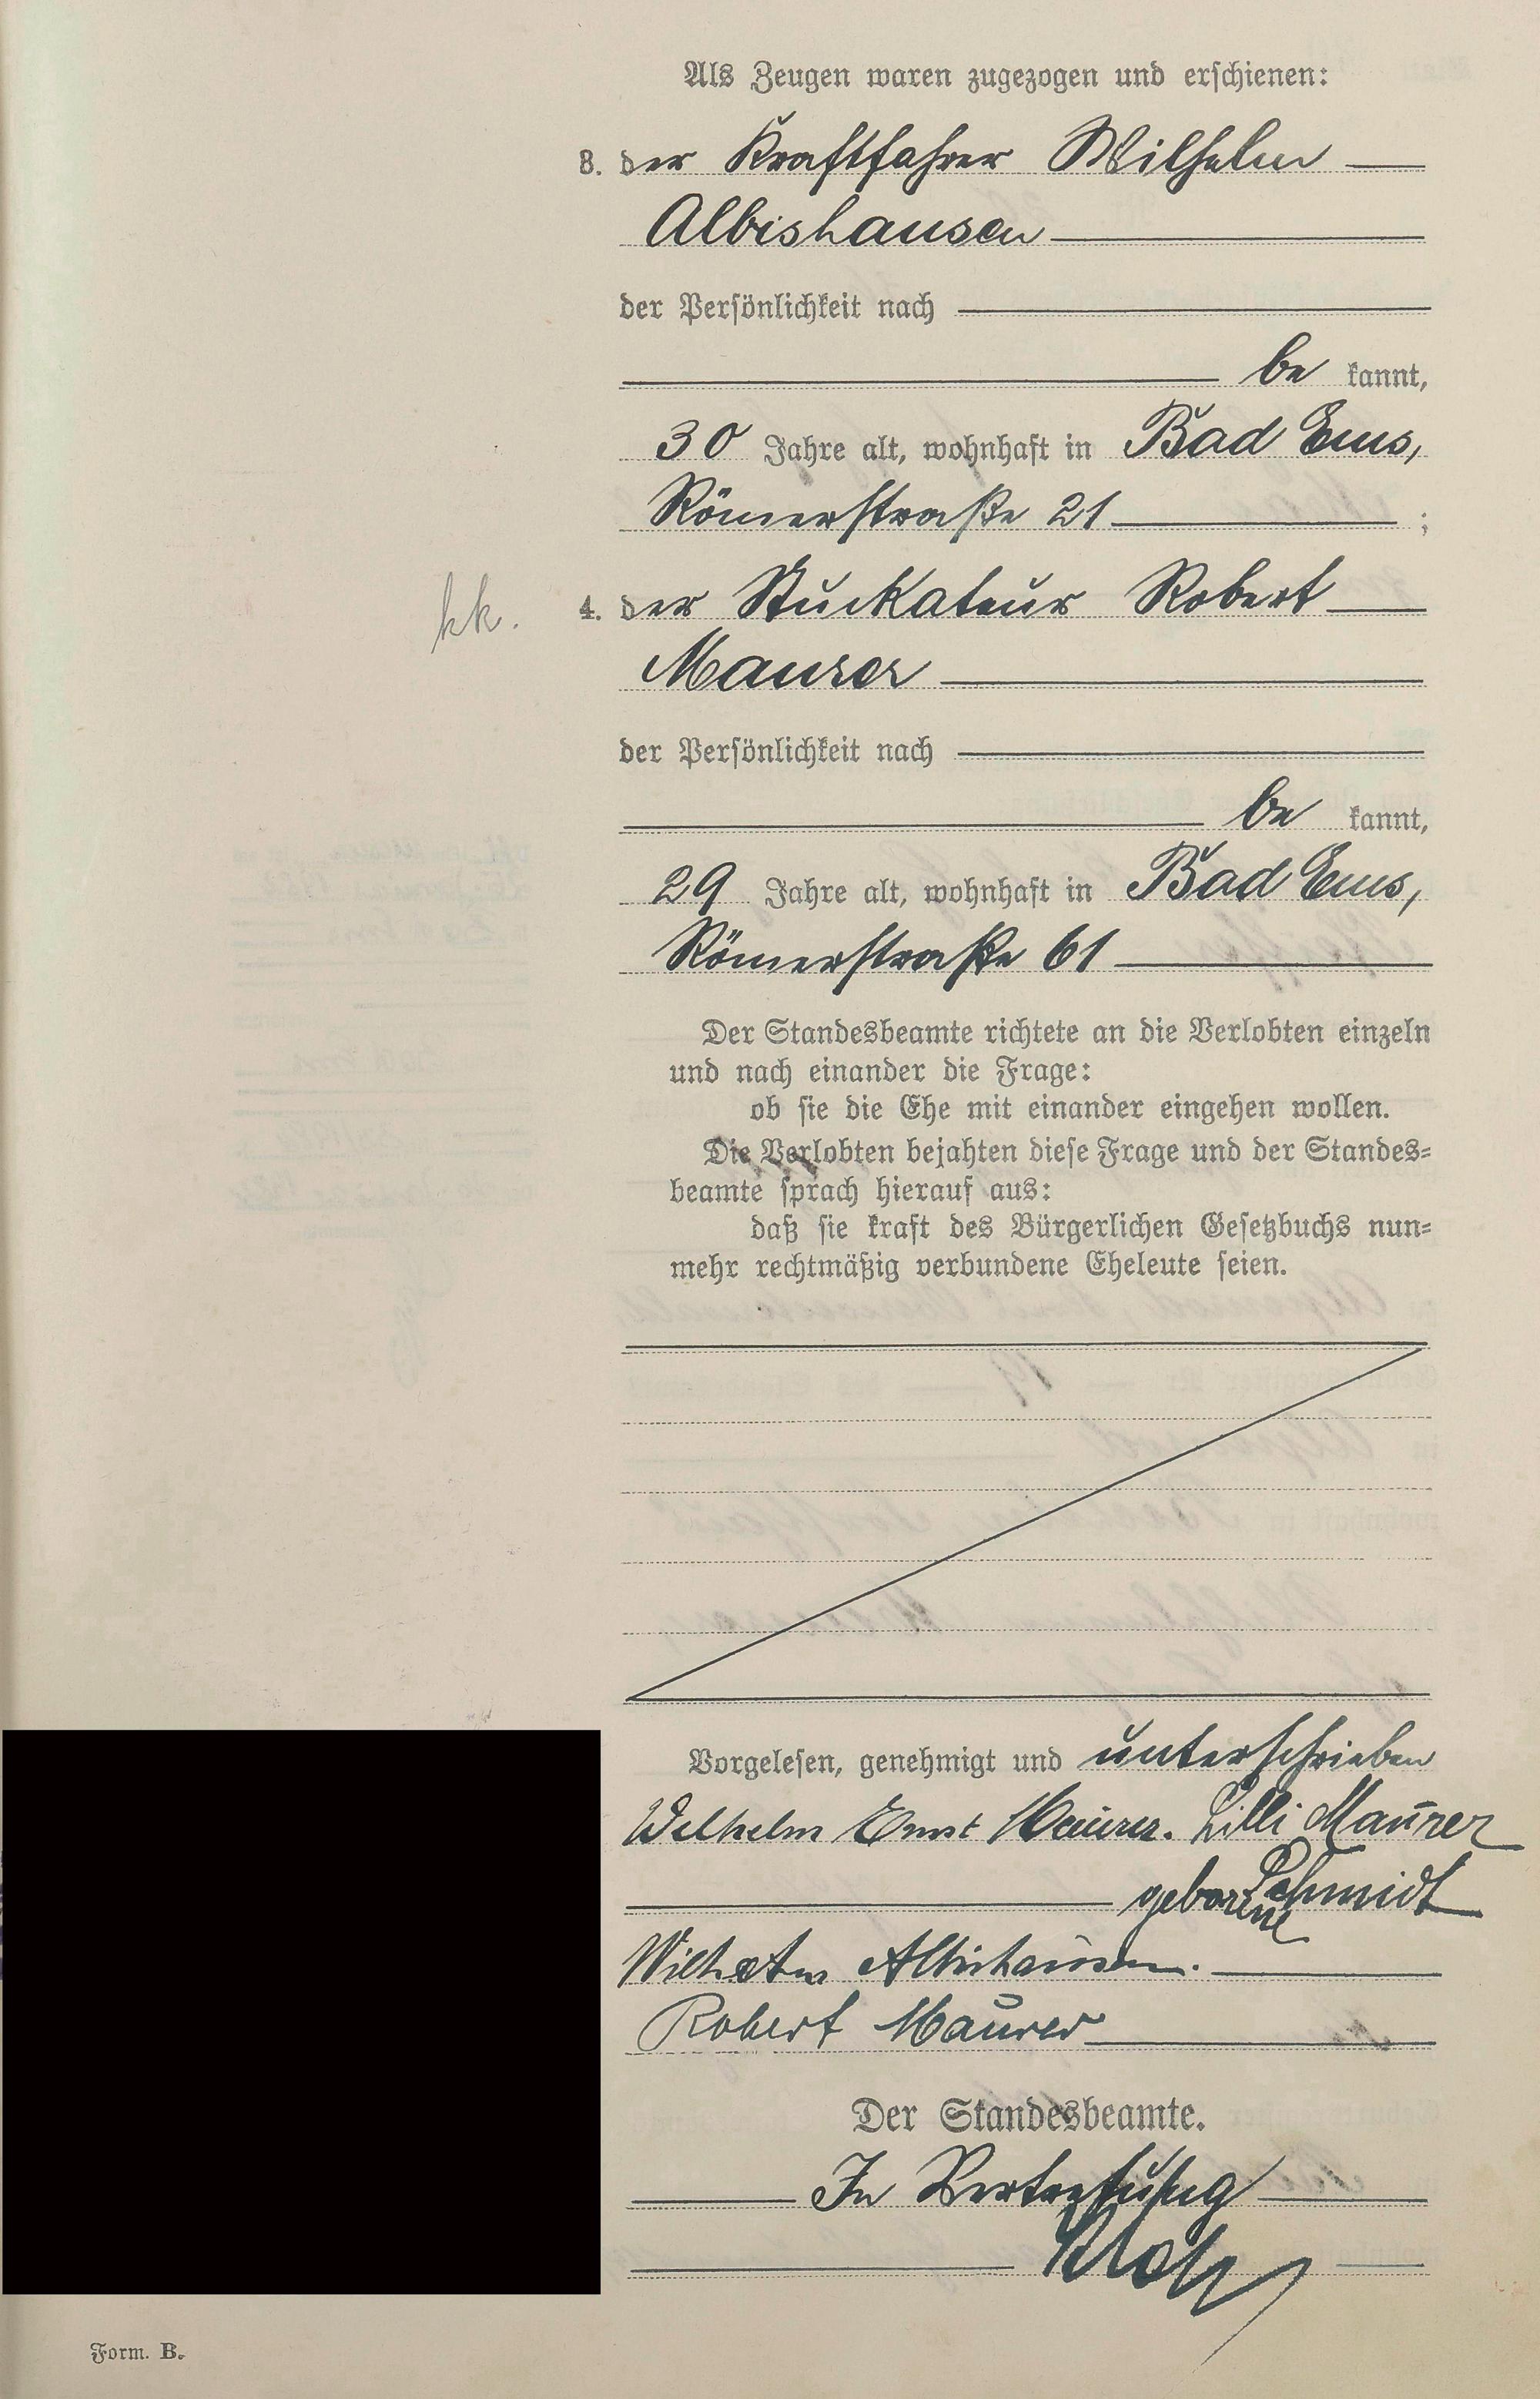 Als Zeugen waren zugezogen und erschienen:
3. der Kraftfahrer Wilhelm
Albishausen
der Persönlichkeit nach
be kannt,
30 Jahre alt, wohnhaft in Bad Ems,
Römerstraße 21 ;
kk. 4. der Stuckateur Robert
Maurer
der Persönlichkeit nach
be kannt,
29 Jahre alt, wohnhaft in Bad Ems,
Römerstraße 61
Der Standesbeamte richtete an die Verlobten einzeln
und nach einander die Frage:
ob sie die Ehe mit einander eingehen wollen.
Die Verlobten bejahten diese Frage und der Standes=
beamte sprach hierauf aus:
daß sie kraft des Bürgerlichen Gesetzbuchs nun=
mehr rechtmäßig verbundene Eheleute seien.
Vorgelesen, genehmigt und unterschrieben
Wilhelm Ernst Maurer. Lilli Maurer
geborene Schmidt
Wilhelm Albishausen.
Robert Maurer
Der Standesbeamte.
In Vertretung
Form. B.